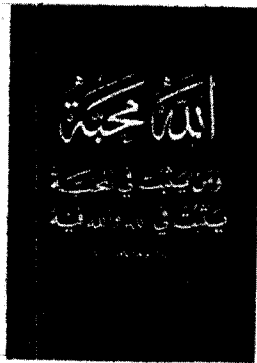 اللّٰه محبة
ومن يثبت في المحبة
يثبت في الله والله فيه